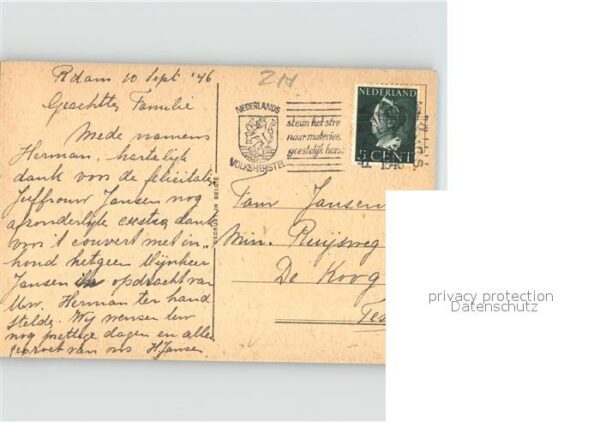 Rdam 10 Sept '46
Geachte Familie
Mede namens
Herman, hartelijk
dank voor de felicitatie
Juffrouw Jansen nog
afzonderlijk extra dank
voor 't couvert met in-
houd hetgeen Mijnheer
Jansen in opdracht van
Uw. Herman ter hand
stelde. Wij wensen Uw
nog prettige dagen en allen
gegroet van ons HJansen
NEDERLANDS
VOLKSHERSTEL
steun het stre
naar materiee
geestelijk hers
NEDERLAND
CENT
1946
Fam Jansen
Min. Ruijsweg
De Koog
Tes
privacy protection
Datenschutz